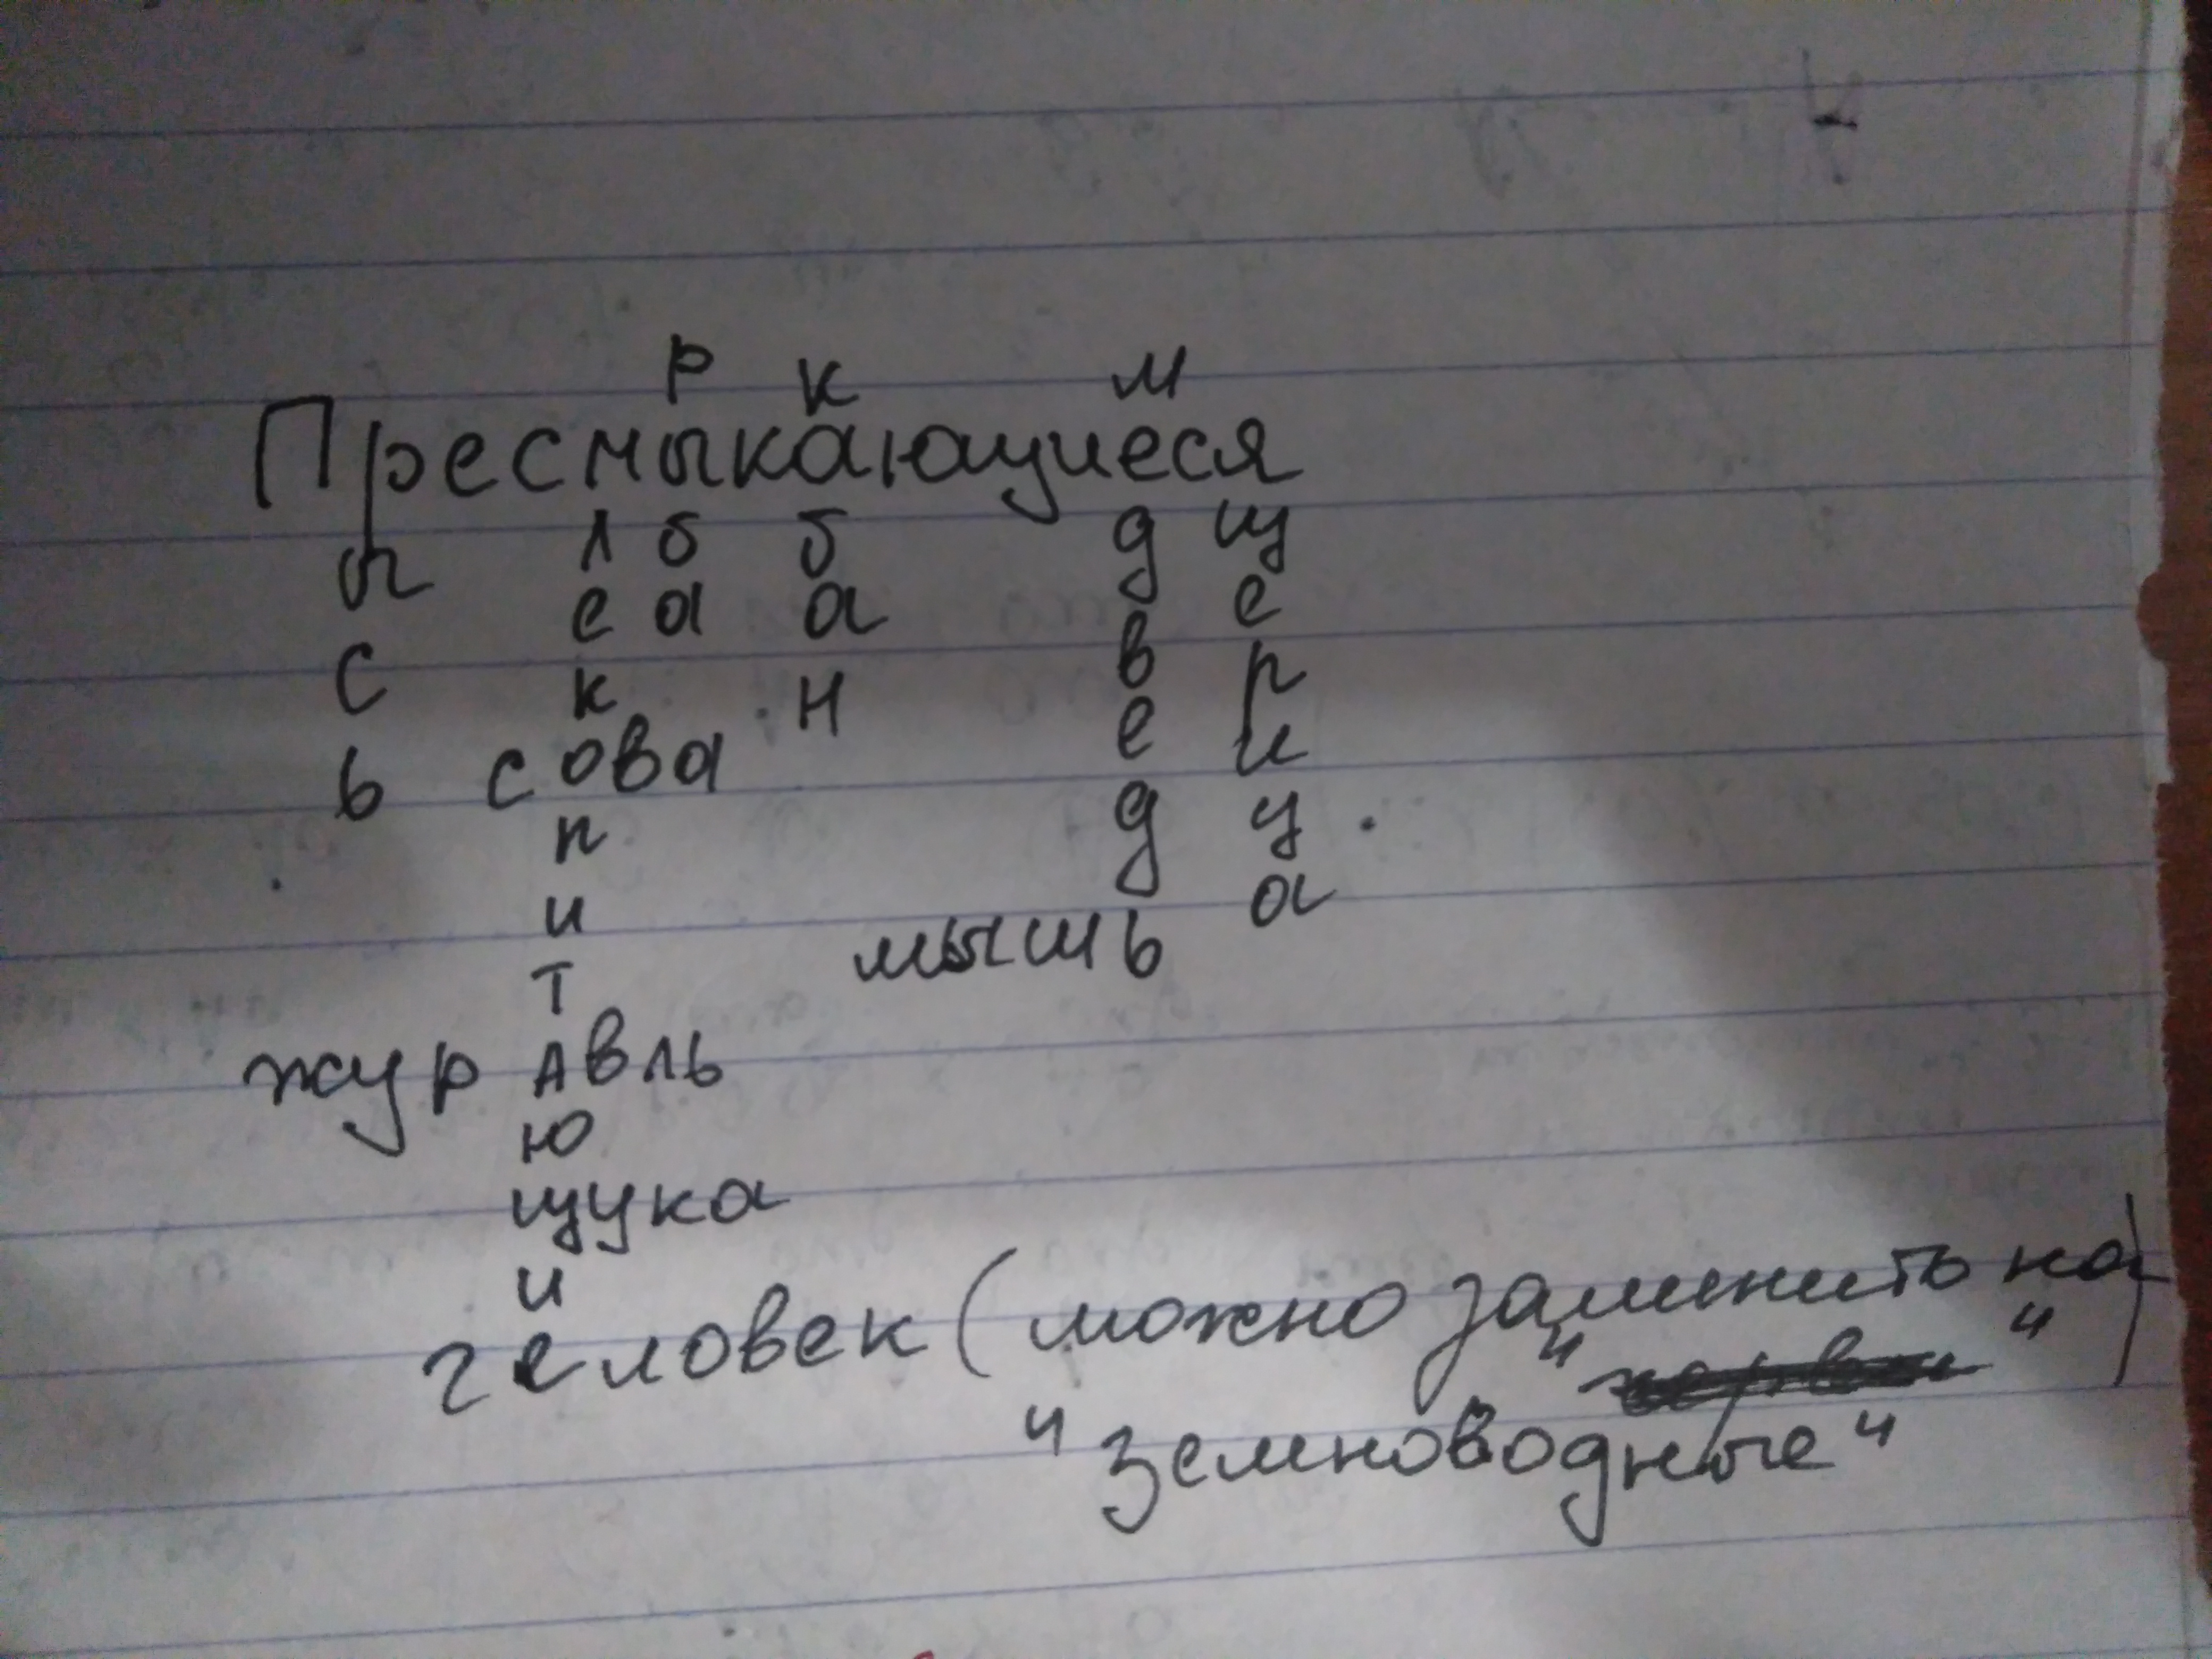 Р К М
Пресмыкающиеся
ы л б б д щ
е а а в е
с к н е р
ь сова и
п д ц
и мышь а
т
журАвль
ю
щука
и
человек (можно заменить на)
"земноводные"